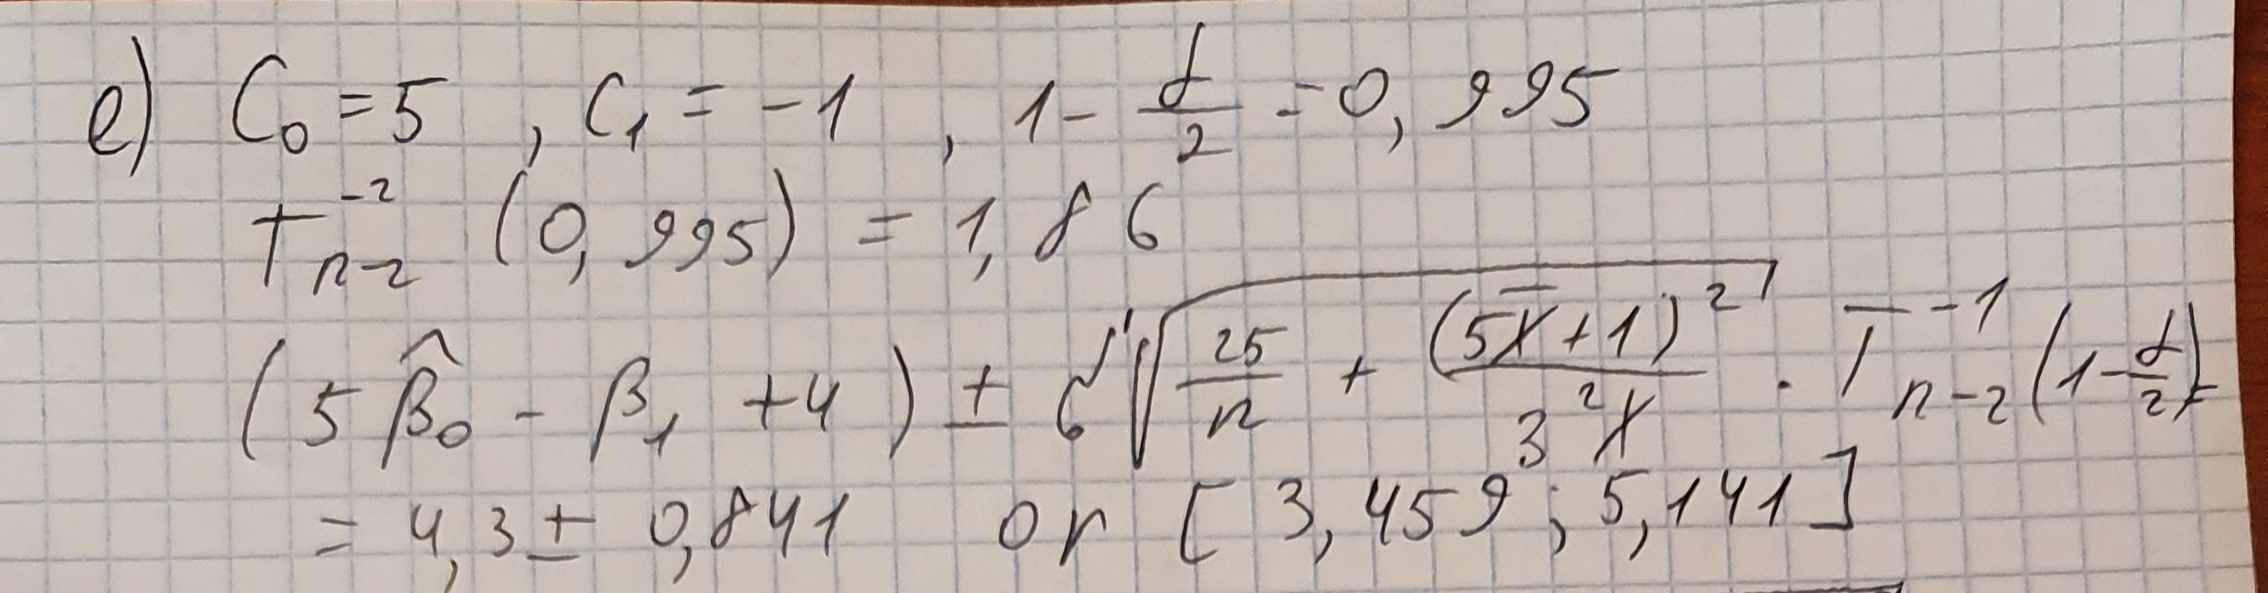 e) C₀ = 5 , C₁ = -1 , 1 - α/2 = 0,995
T⁻²ₙ₋₂ (0,995) = 1,86
(5β̂₀ - β₁ + 4) ± σ' √(25/n + (5x̄+1)²/(3²x)) · T⁻¹ₙ₋₂ (1 - α/2) =
= 4,3 ± 0,841 or [3,459 ; 5,141]